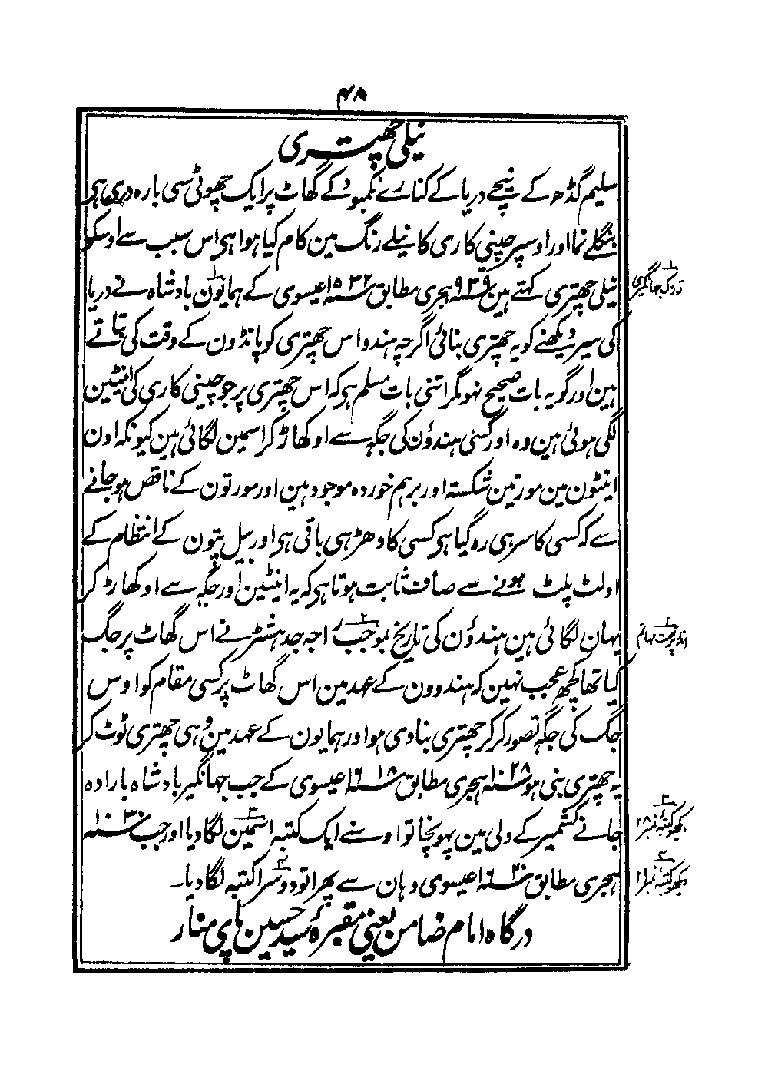 ۴۸
نیلی چھتری
سلیم گڈھ کے نیچے دریا کے کنارے نگمبود کے گھاٹ پر ایک چھوٹی سی بارہ دری ہی
بنگلے نما اور اوسپر چینی کاری کا نیلے رنگ مین کام کیا ہوا ہی اس سبب سے اوسکو
نیلی چھتری کہتے ہین ۹۳۹ ہجری مطابق ۱۵۳۲ عیسوی کے ہمایون بادشاہ نے دریا
تزک جہانگیری
کی سیر دیکھنے کو یہ چھتری بنائی اگرچہ ہندو اس چھتری کو پانڈون کے وقت کی بتاتے
ہین اور گو یہ بات صحیح نہو مگر اتنی بات مسلم ہی کہ اس چھتری پر جو چینی کاری کی اینٹین
لگی ہوئی ہین وہ اور کسی ہندؤن کی جگہ سے اوکھاڑ کر اسمین لگائی ہین کیونکہ اون
اینٹون مین مورتین شکستہ اور برہم خوردہ موجود ہین اور مورتون کے ناقص ہو جانے
سے کہ کسی کا سر ہی رہ گیا ہی کسی کا دھڑ ہی باقی ہی اور بیل پتون کے انتظام کے
اولٹ پلٹ ہونے سے صاف ثابت ہوتا ہی کہ یہ اینٹین اور جگہ سے اوکھاڑ کر
یہان لگائی ہین ہندؤن کی تاریخ بموجب راجہ جدہشٹر نے اس گھاٹ پر جگ
اندرپرست مہاتم
کیا تھا کچھ عجب نہین کہ ہندوون کے عہد مین اس گھاٹ پر کسی مقام کو اوس
جگ کی جگہ تصور کر کر چھتری بنا دی ہو اور ہمایون کے عہد مین وہی چھتری ٹوٹ کر
یہ چھتری بنی ہو ۱۰۲۸ ہجری مطابق ۱۶۱۸ عیسوی کے جب جہانگیر بادشاہ بارادہ
جانے کشمیر کے دلی مین پہونچا تو اوسنے ایک کتبہ اسمین لگا دیا اور جب ۱۰۳۰
دیکھو کتبہ نمبر
ہجری مطابق ۱۶۲۰ عیسوی وہان سے پھرا تو دوسرا کتبہ لگا دیا۔
دیکھو کتبہ نمبر
درگاہ امام ضامن یعنی مقبرہ سید حسین پای منار